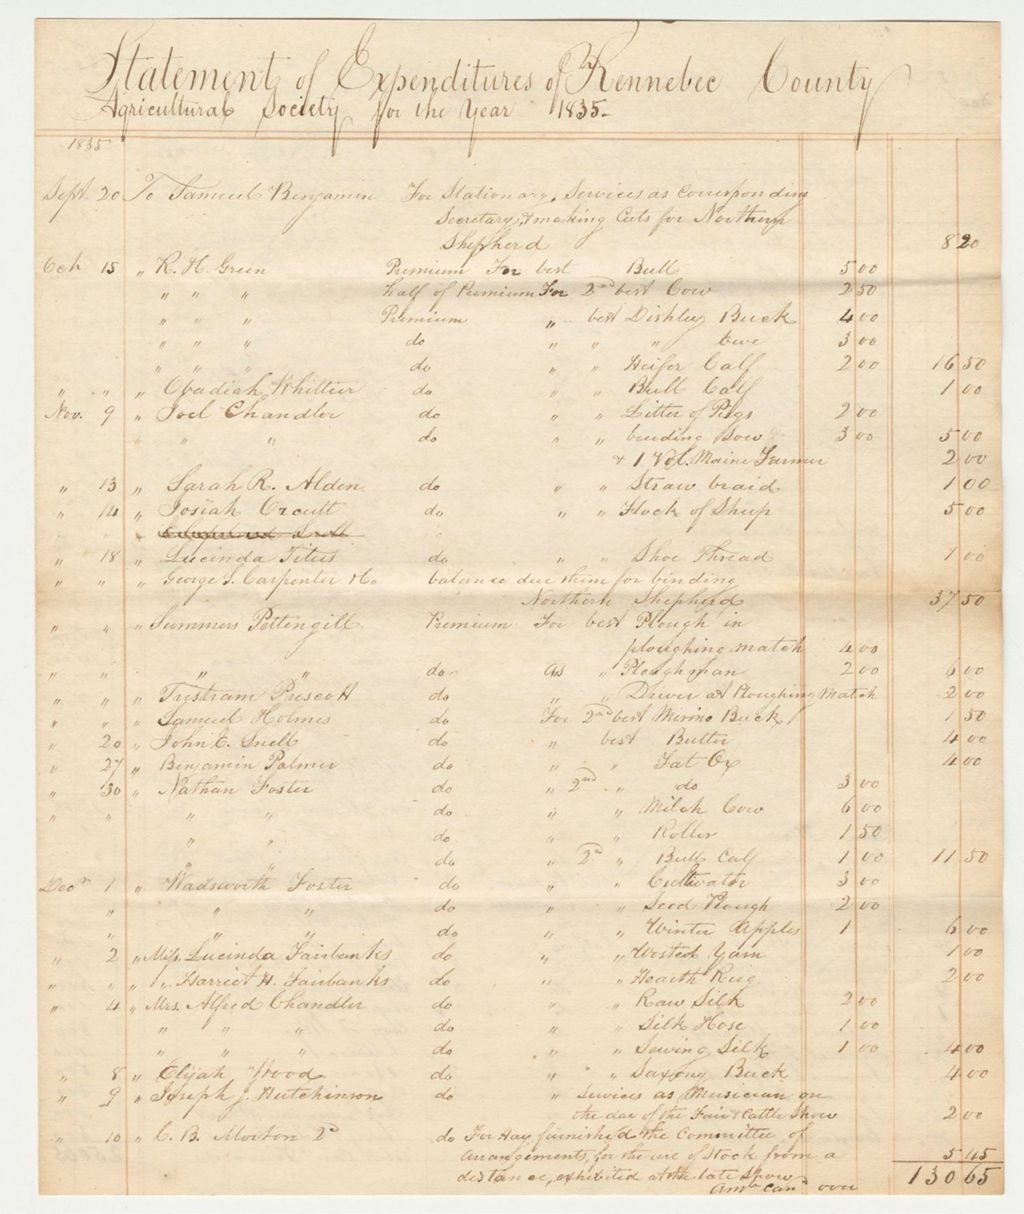 Statement of Expenditures of Kennebec County
Agricultural Society for the Year 1835-
1835
Sept. 20 To Samuel Benjamin For Stationary, Services as Corresponding
Secretary, & making Cuts for Northern
Shepherd 8 20
Oct. 15 " R. H. Green Premium For best Bull 5 00
" " " half of Premium For 2nd best Cow 2 50
" " " Premium " best Dishley Buck 4 00
" " " do " " " Ewe 3 00
" " " do " " Heifer Calf 2 00 16 50
" " " Obadiah Whittier do " " Bull Calf 1 00
Nov. 9 " Joel Chandler do " " Litter of Pigs 2 00
" " " do " " breeding Sow 3 00 5 00
& 1 Vol. Maine Farmer 2 00
" 13 " Sarah R. Alden do " " Straw braid 1 00
" 14 " Josiah Orcutt do " " Flock of Sheep 5 00
" 18 " Lucinda Titus do " " Shoe Thread 1 00
" " " George S. Carpenter & Co balance due them for binding
Northern Shepherd 37 50
" " " Summers Pettengill Premium For best Plough in
ploughing match 4 00
" " do as " Ploughman 2 00 6 00
" " " Tristram Prescott do " " Driver at Ploughing Match 2 00
" " " Samuel Holmes do For 2nd best Merino Buck 1 50
" 20 " John E. Snell do " best Butter 4 00
" 27 " Benjamin Palmer do " " Fat Ox 4 00
" 30 " Nathan Foster do " 2nd " do 3 00
" " " " do " " Milch Cow 6 00
" " do " " Roller 1 50
" " do " 2d " Bull Calf 1 00 11 50
Decr 1 " Wadsworth Foster do " " Cultivator 3 00
" " " do " " Seed Plough 2 00
" " " do " " Winter Apples 1 6 00
" 2 " Miss. Lucinda Fairbanks do " " Wosted Yarn 1 00
" " " " Harriet H. Fairbanks do " " Hearth Rug 2 00
" 4 " Mrs. Alfred Chandler do " " Raw Silk 2 00
" " " do " " Silk Hose 1 00
" " " " do " " Sewing Silk 1 00 4 00
" 8 " Elijah Wood do " " Saxony Buck 4 00
" 9 " Joseph J. Hutchinson do " Services as Musician on
the day of the Fair & Cattle Show 2 00
" 10 " C. B. Morton 2d do For Hay furnished the Committee of
Arrangements, for the use of Stock from a 5 45
distance, exhibited at the late Show 130 65
Amt. card over